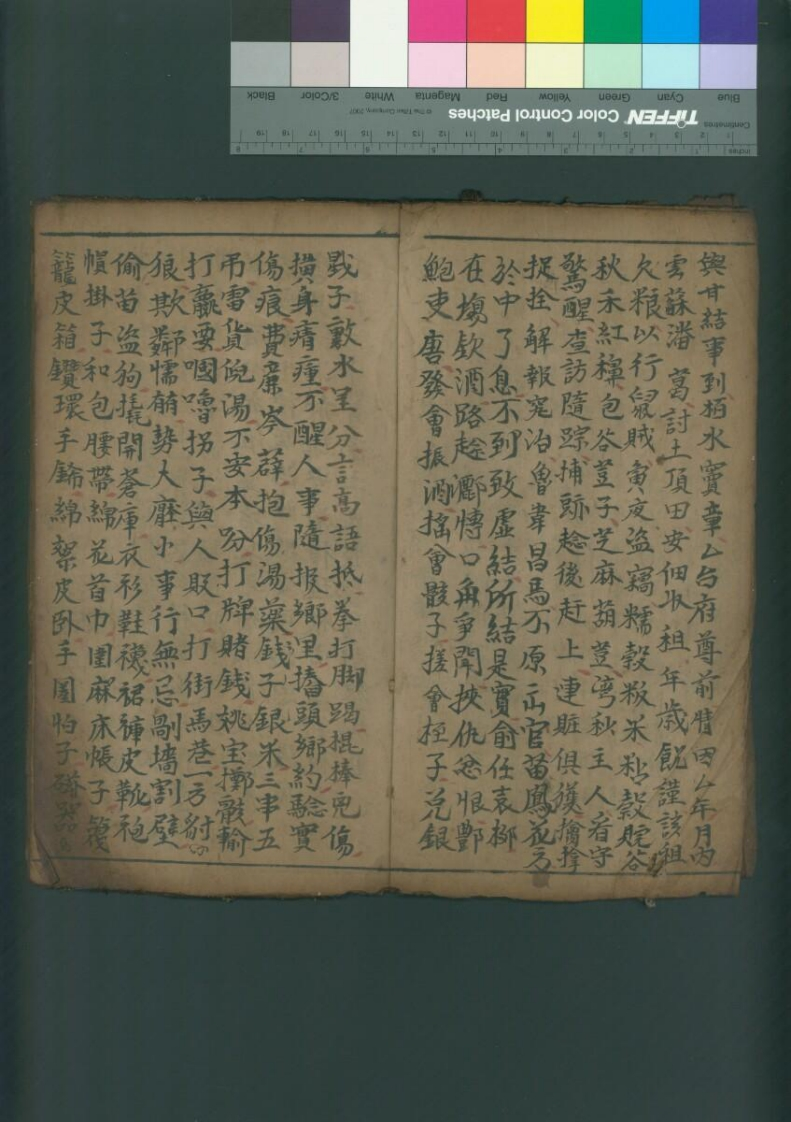 Blue Cyan Green Yellow Red Magenta White 3/Color Black
Centimetres TIFFEN Color Control Patches © The Tiffen Company, 2007
Inches
與甘結事到栢水竇章厶台府尊前肯因厶年月內
雲蘇潘葛討土頂田安佃收租年歲飢謹該租
欠粮以行鼠賊寅夜盜竊糯穀粄米秥穀晥谷
秋禾紅稗包谷荳子芝麻葫荳灣秋主人看守
驚醒查訪隨踪捕跡趁後赶上連賍俱獲擒拿
捉拴解報究治魯韋昌馬不原正官苗鳳花方
於中了息不到致虛結所結是實俞任袁柳
在塲飲酒路趁酈慱口角爭閙挾仇忿恨酆
鮑吏唐發會振酒搖會骰子搓會極子兌銀
戥子歡水呈分言高語抵拳打脚踢棍棒兇傷
横身瘠瘇不醒人事隨报鄉里播頭鄉約驗實
傷痕費亷岑薛抱傷湯藥錢子銀米三串五
吊雷貨倪湯不安本分打牌賭錢姚宝擲骰輸
打贏要嘓嚕拐子與人敺口打街馬巷一方
狼欺鄰懦簓势大靡小事行無忌剮墻割壁
偷苗盜狗撬開蒼庫衣衫鞋襪裙褲皮靴袍
幁掛子和包腰帶綿花首巾圍麻床帳子篾
籠皮箱鑽環手錦綿絮皮卧手圖怕子磁器